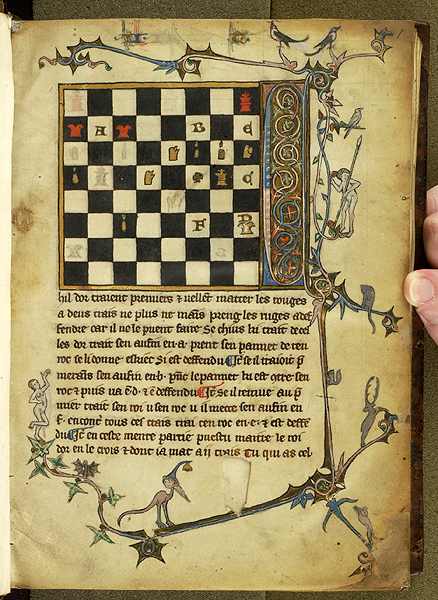 B E
A
C
F D
hil dor traient premiers ⁊ uellent matter les rouges
a deus trais ne plus ne mains preng les ruges a def
fendre car il ne le puent faire Se chius ki trait de cel
les dor trait sen aufin en .a. prent sen paonnet de ten
roc se li donne eskiec Si est deffendu Et se il traioit p̄
merais sen aufin en .b. le paonnet ki est otre sen
roc ⁊ puis ua ē d. ⁊ ē deffendu Et se il retrue au p̄
mier trait sen roi u sen roc u il mete sen aufin en
F. encontre tous ces trais trai ten roc en .e. ⁊ est deffe
du Et en ceste meire partie puestu maitre le roi
dor en le crois ⁊ dont ia mat a ij trais Tu qui as cel